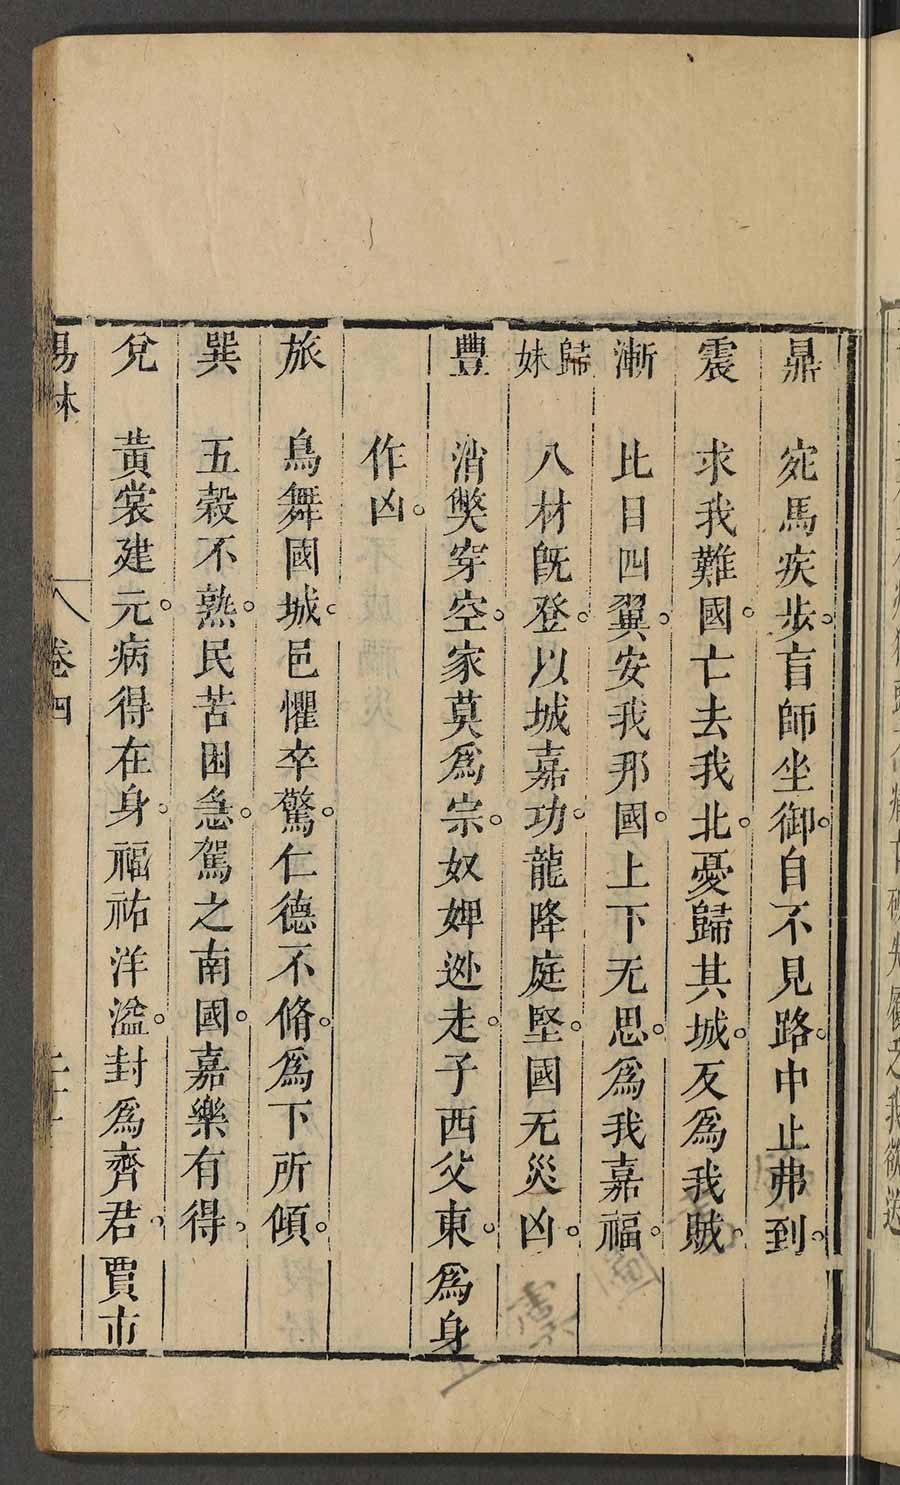 鼎 宛馬疾步。盲師坐御。自不見路。中止弗到。
震 求我難國。亡去我北。憂歸其城。反爲我賊。
漸 比目四翼。安我那國。上下无思。爲我嘉福。
歸妹 八材旣登。以城嘉功。龍降庭堅。國无災凶。
豐 消獘穿空。家莫爲宗。奴婢逊走。子西父東。爲身
作凶。
旅 鳥舞國城。邑懼卒驚。仁德不脩。爲下所傾。
巽 五穀不熟。民苦困急。駕之南國。嘉樂有得。
兌 黃裳建元。病得在身。福祐洋溢。封爲齊君。賈市
易林 卷四